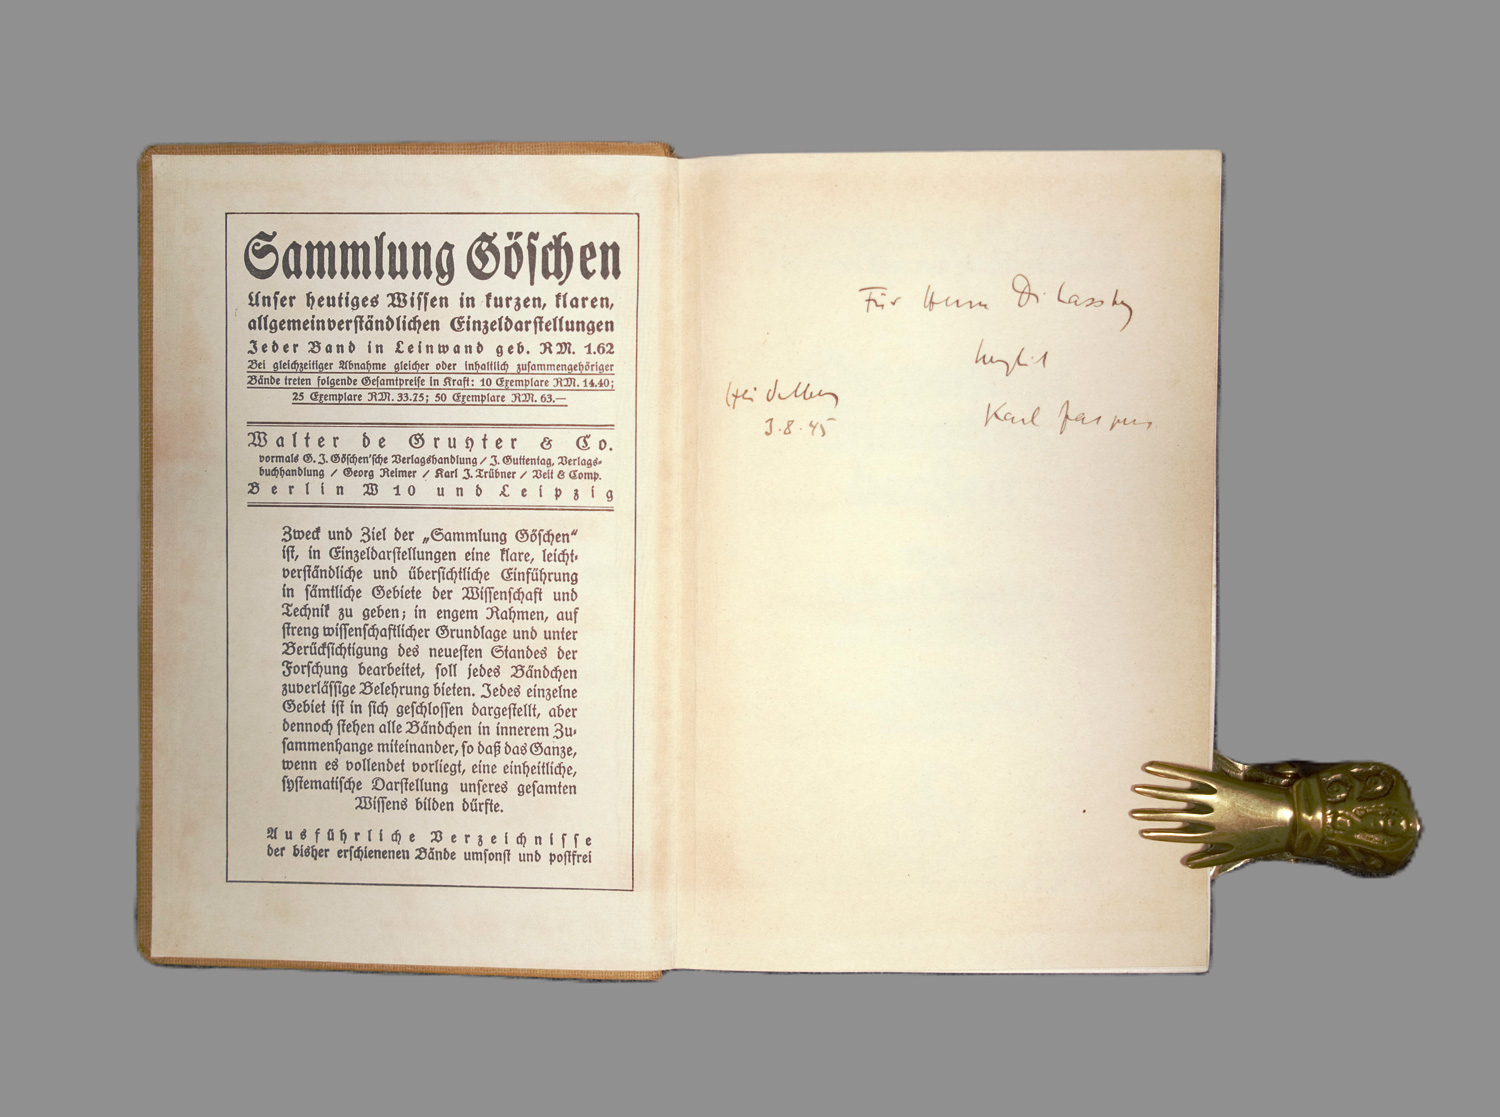 Sammlung Göschen
Unser heutiges Wissen in kurzen, klaren,
allgemeinverständlichen Einzeldarstellungen
Jeder Band in Leinwand geb. RM. 1.62
Bei gleichzeitiger Abnahme gleicher oder inhaltlich zusammengehöriger
Bände treten folgende Gesamtpreise in Kraft: 10 Exemplare RM. 14.40;
25 Exemplare RM. 33.75; 50 Exemplare RM. 63.—
Walter de Gruyter & Co.
vormals G. J. Göschen'sche Verlagshandlung / J. Guttentag, Verlags-
buchhandlung / Georg Reimer / Karl J. Trübner / Veit & Comp.
Berlin W 10 und Leipzig
Zweck und Ziel der „Sammlung Göschen“
ist, in Einzeldarstellungen eine klare, leicht-
verständliche und übersichtliche Einführung
in sämtliche Gebiete der Wissenschaft und
Technik zu geben; in engem Rahmen, auf
streng wissenschaftlicher Grundlage und unter
Berücksichtigung des neuesten Standes der
Forschung bearbeitet, soll jedes Bändchen
zuverlässige Belehrung bieten. Jedes einzelne
Gebiet ist in sich geschlossen dargestellt, aber
dennoch stehen alle Bändchen in innerem Zu-
sammenhange miteinander, so daß das Ganze,
wenn es vollendet vorliegt, eine einheitliche,
systematische Darstellung unseres gesamten
Wissens bilden dürfte.
Ausführliche Verzeichnisse
der bisher erschienenen Bände umsonst und postfrei
Für Herrn Dr
herzlich
Heidelberg
3.8.45
Karl Jaspers